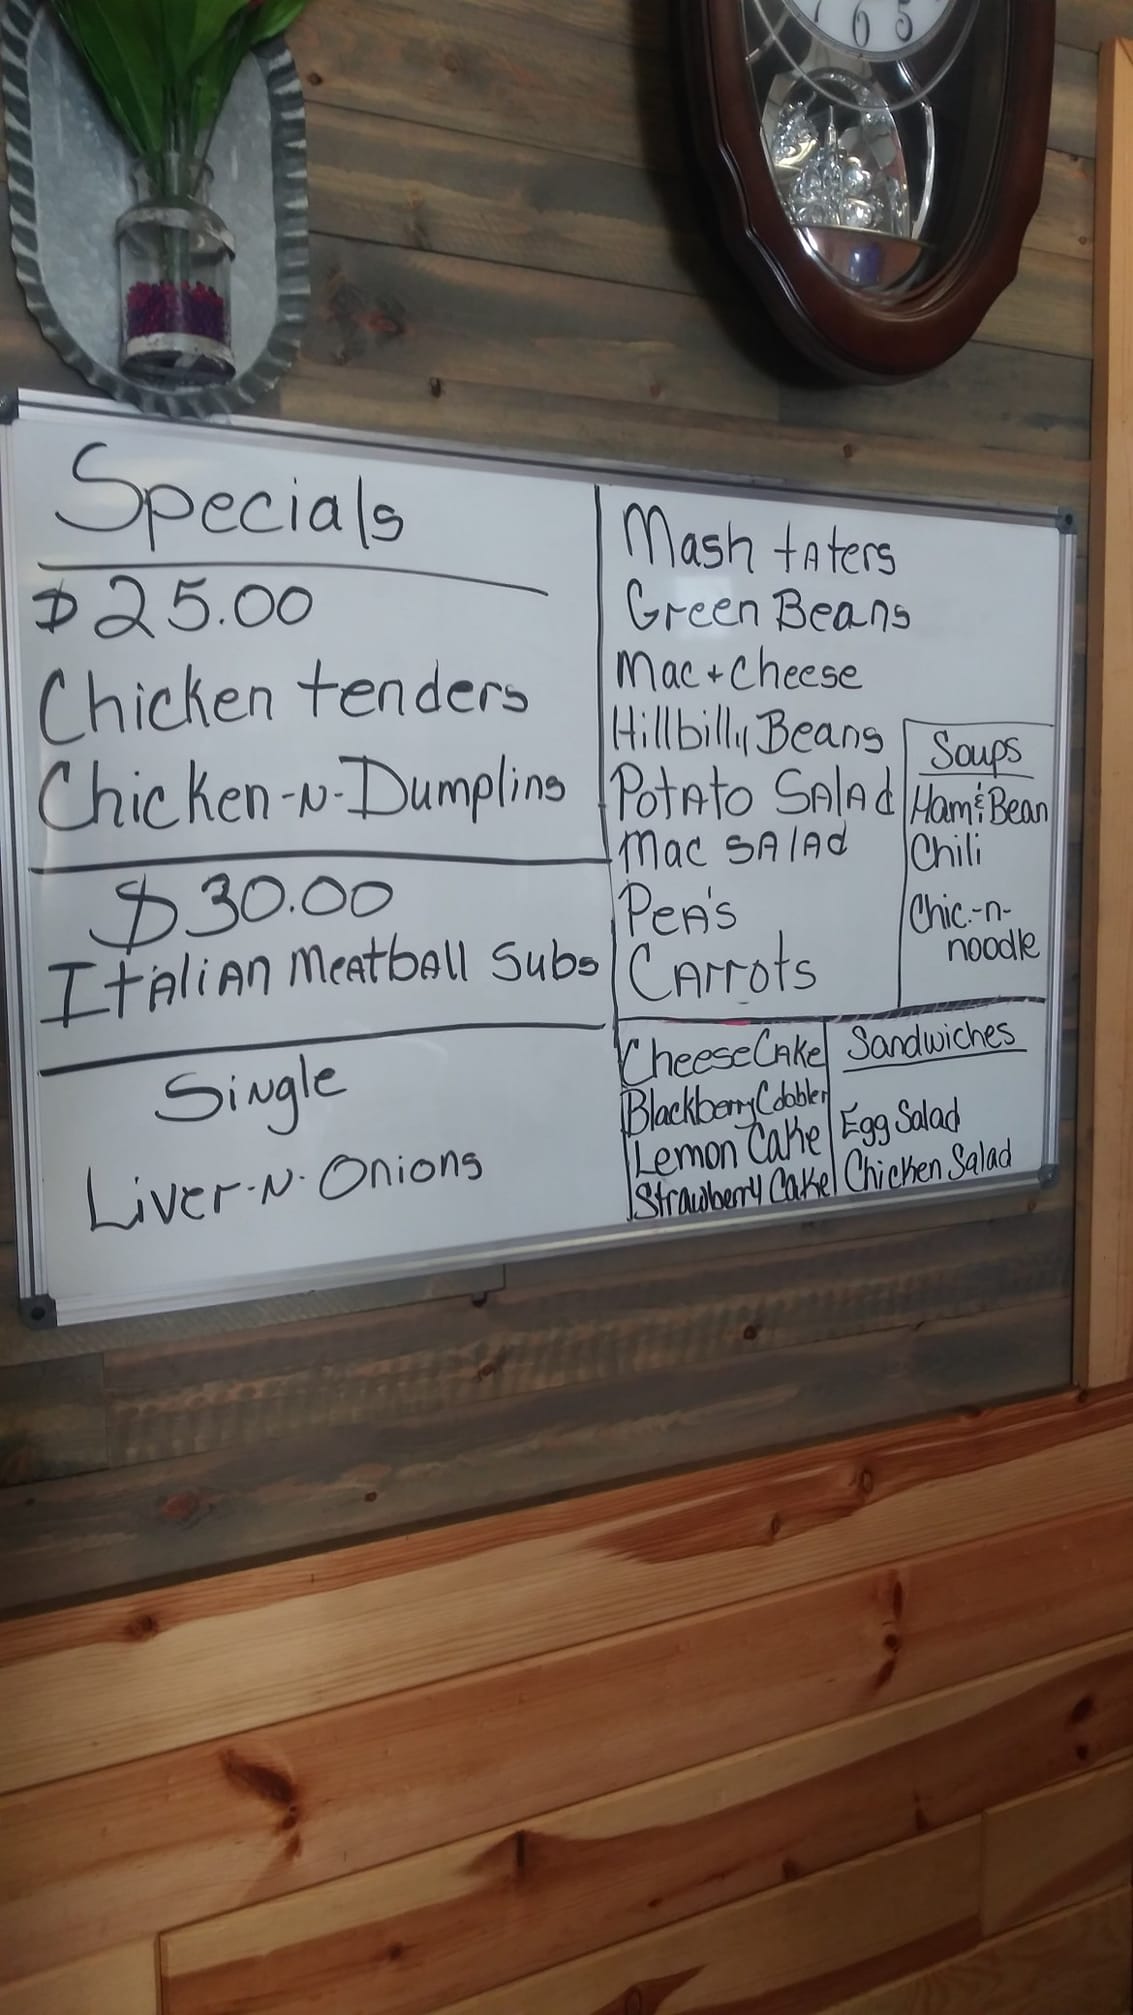 Specials
$25.00
Chicken tenders
Chicken-N-Dumplins
$30.00
Italian Meatball Subs
Single
Liver-N-Onions
Mash taters
Green Beans
Mac + Cheese
Hillbilly Beans
Potato Salad
Mac Salad
Pea's
Carrots
Soups
Ham & Bean
Chili
Chic.-n-
noodle
Cheese Cake
Blackberry Cobbler
Lemon Cake
Strawberry Cake
Sandwiches
Egg Salad
Chicken Salad
6 5